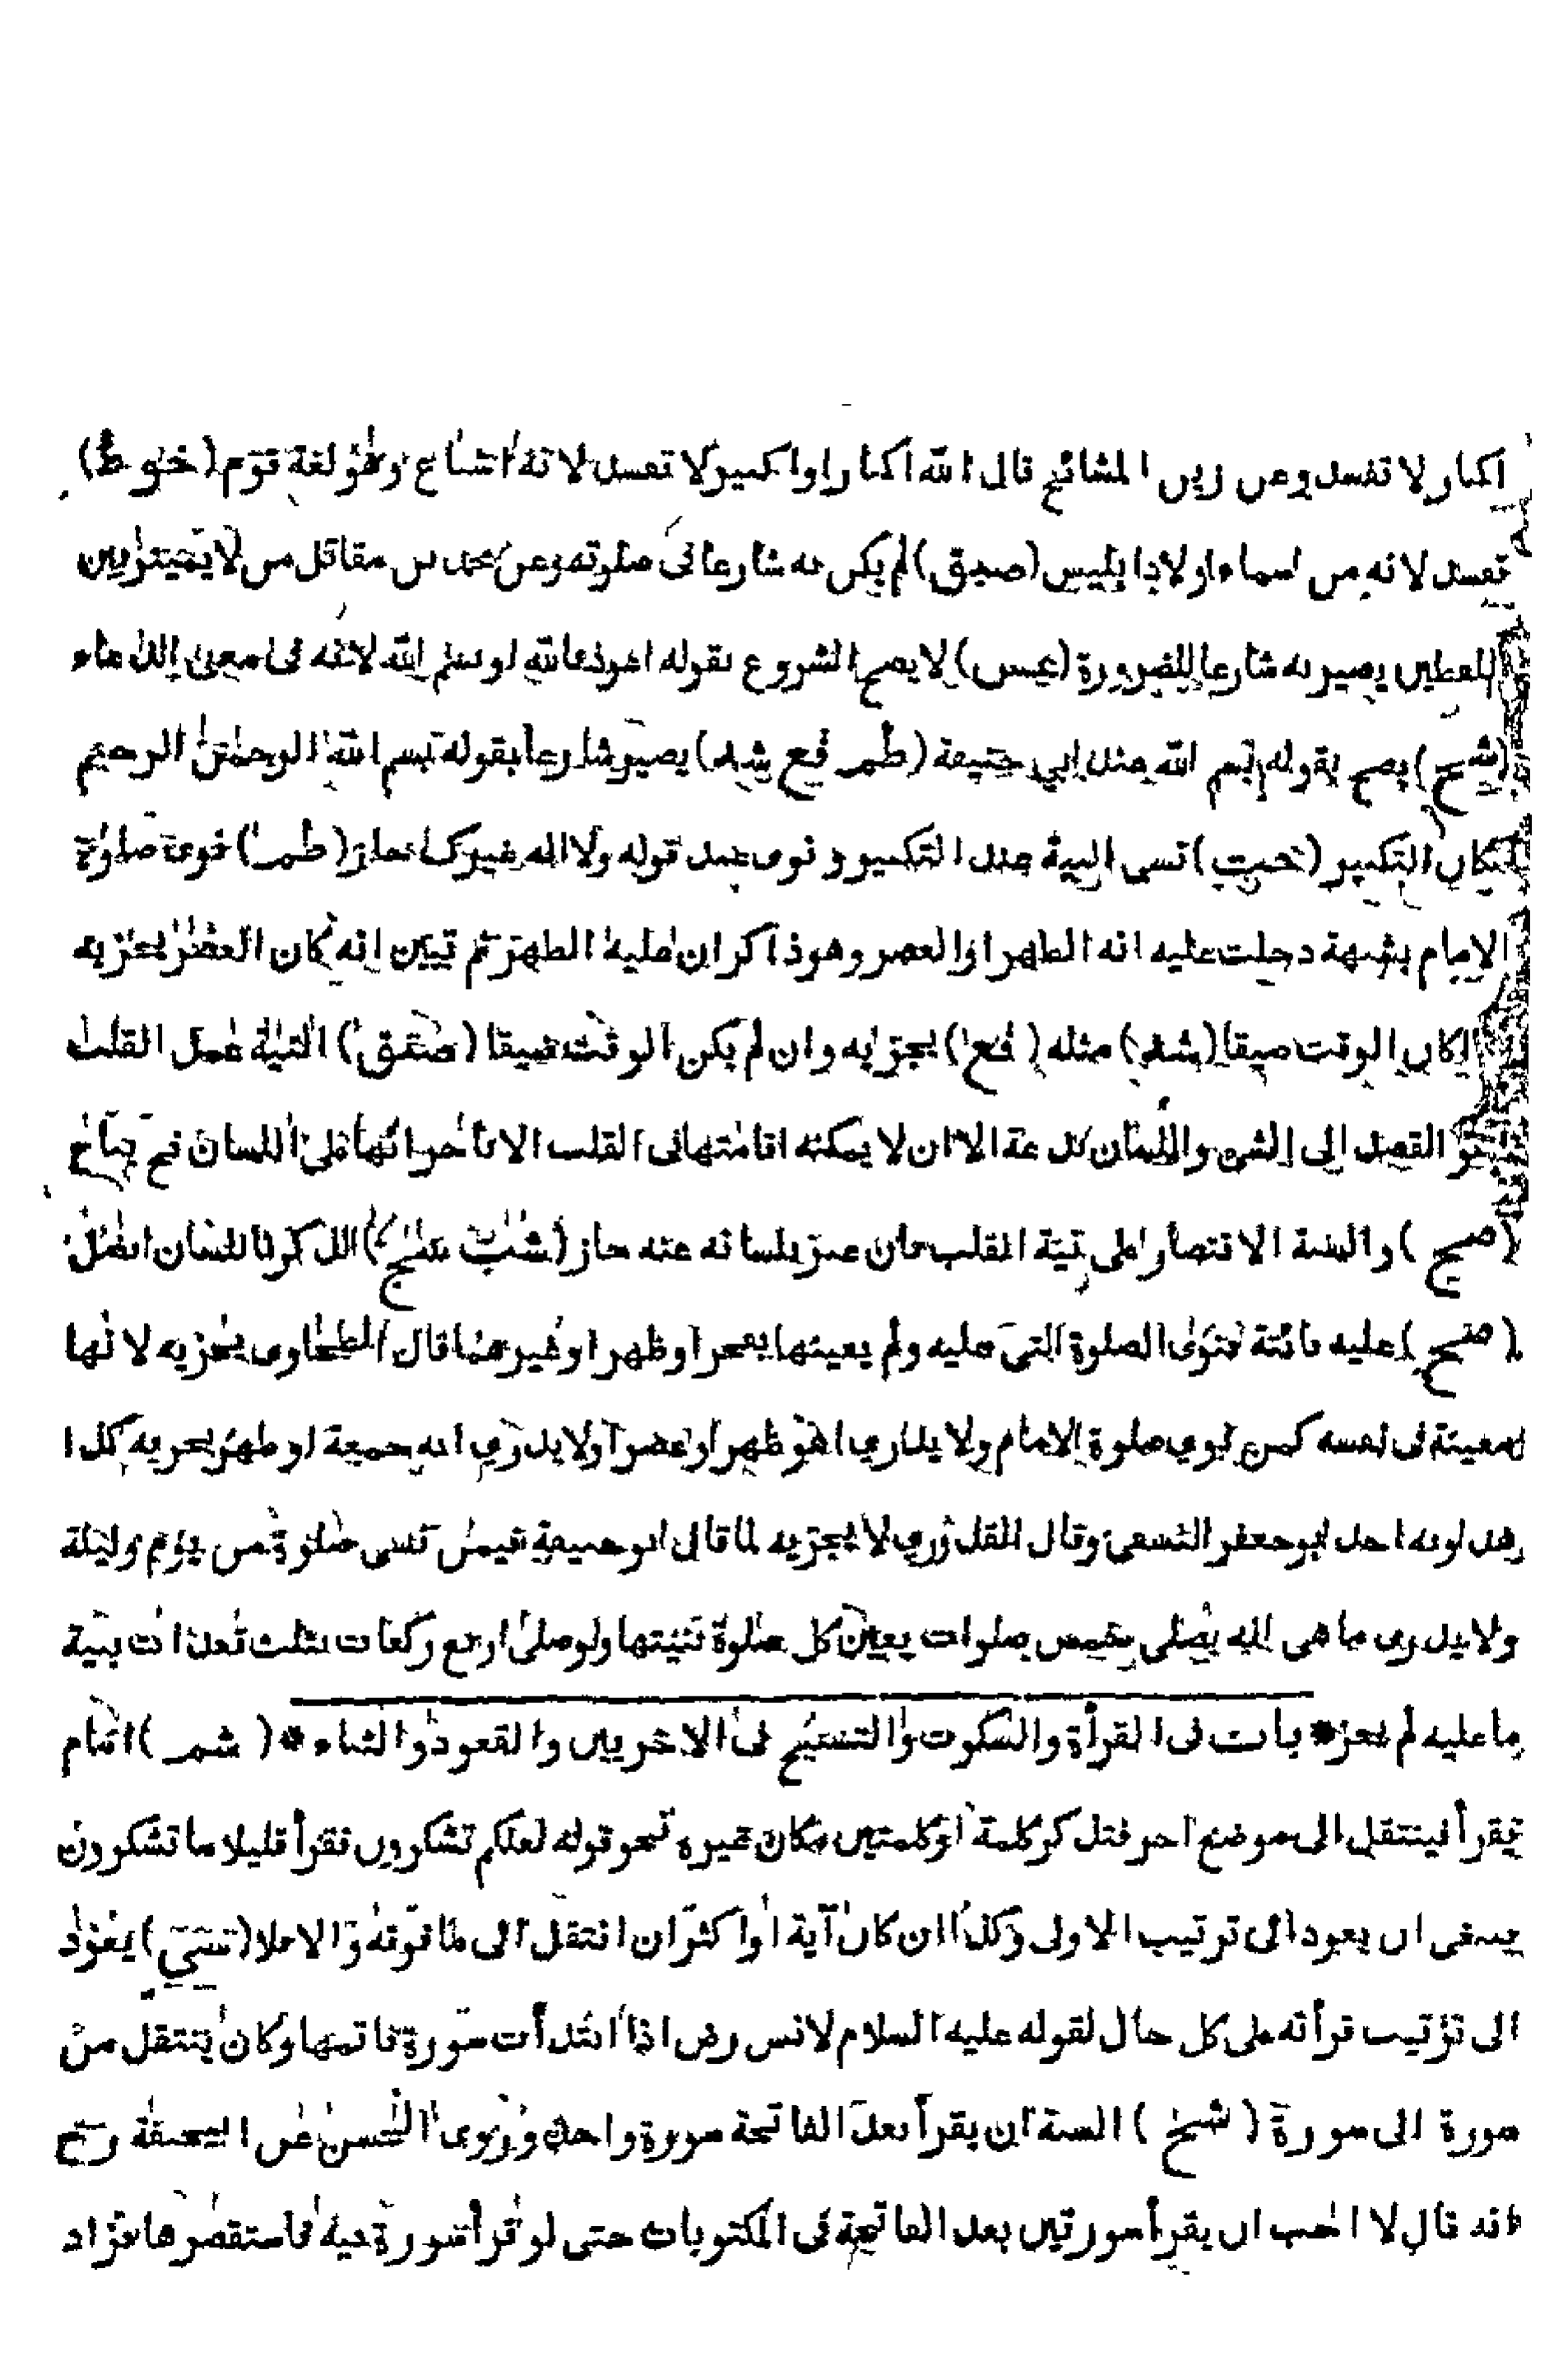 اكبار لا تفسد وعن زين المشائخ قال الله اكبار او اكبير لا تفسد لانه اشباع وهو لغة قوم (خوط)
تفسد لانه من اسماء اولاد ابليس (صبق) لم يكن به شارعا فى صلوته وعن محمد بن مقاتل من لا يميز بين
اللفظين يصير به شارعا للضرورة (عس) لا يصح الشروع بقوله اعوذ بالله او بسم الله لانه فى معنى الدعاء
(شح) يصح بقوله بسم الله عند ابي حنيفة (طمر فع شد) يصير شارعا بقوله بسم الله الرحمن الرحيم
مكان التكبير نسى النية عند التكبير و نوى عند قوله ولا اله غيرك جاز (طم) نوى صلوة
الامام بشبهة دخلت عليه انه الظهر او العصر وهو ذاكر ان عليه الظهر ثم تبين انه كان العصر يجزيه
ان كان الوقت ضيقا (شد) مثله (فع) يجزيه وان لم يكن الوقت ضيقا (صغق) النية عمل القلب
نحو القصد الى الشىء واللسان بدعة الا ان لا يمكنه اقامتها فى القلب الا باجرائها على اللسان فح يباح
(صح) والسنة الاقتصار على نية القلب فان عبر بلسانه عنه جاز الذكر باللسان افضل
(صح) عليه فائتة فنوى الصلوة التى عليه ولم يعينها بفجر او ظهر او غيرهما قال الطحاوى يجزيه لانها
معينة فى نفسه كمن نوى صلوة الامام ولا يدري اهو ظهر او عصر او لا يدري انه جمعة او ظهر يجزيه كذا
هذا وبه اخذ ابو جعفر النسفى وقال القدوري لا يجزيه لما قال ابو حنيفة فيمن نسى صلوة من يوم وليلة
ولا يدرى ما هى انه يصلى خمس صلوات يعين كل صلوة بنيتها ولو صلى اربع ركعات بثلث قعدات بنية
ما عليه لم يجز * باب فى القرأة والسكوت والتسبيح فى الاخريين والقعود والثناء * (شم) امام
يقرأ فينتقل الى موضع اخر فتذكر كلمة او كلمتين مكان غيره نحو قوله لعلكم تشكرون فقرأ قليلا ما تشكرون
ينبغى ان يعود الى ترتيب الاولى وكذا ان كان آية او اكثر ان انتقل الى ما فوقه والا فلا يعود
الى ترتيب قرأته على كل حال لقوله عليه السلام لانس رض اذا ابتدأت سورة فاتمها وكان ينتقل من
سورة الى سورة (شخ) السنة ان يقرأ بعد الفاتحة سورة واحدة وروى الحسن عن ابيحنيفة رح
انه قال لا احب ان يقرأ سورتين بعد الفاتحة فى المكتوبات حتى لو قرأ سورة فيه فاستقصرها فزاد